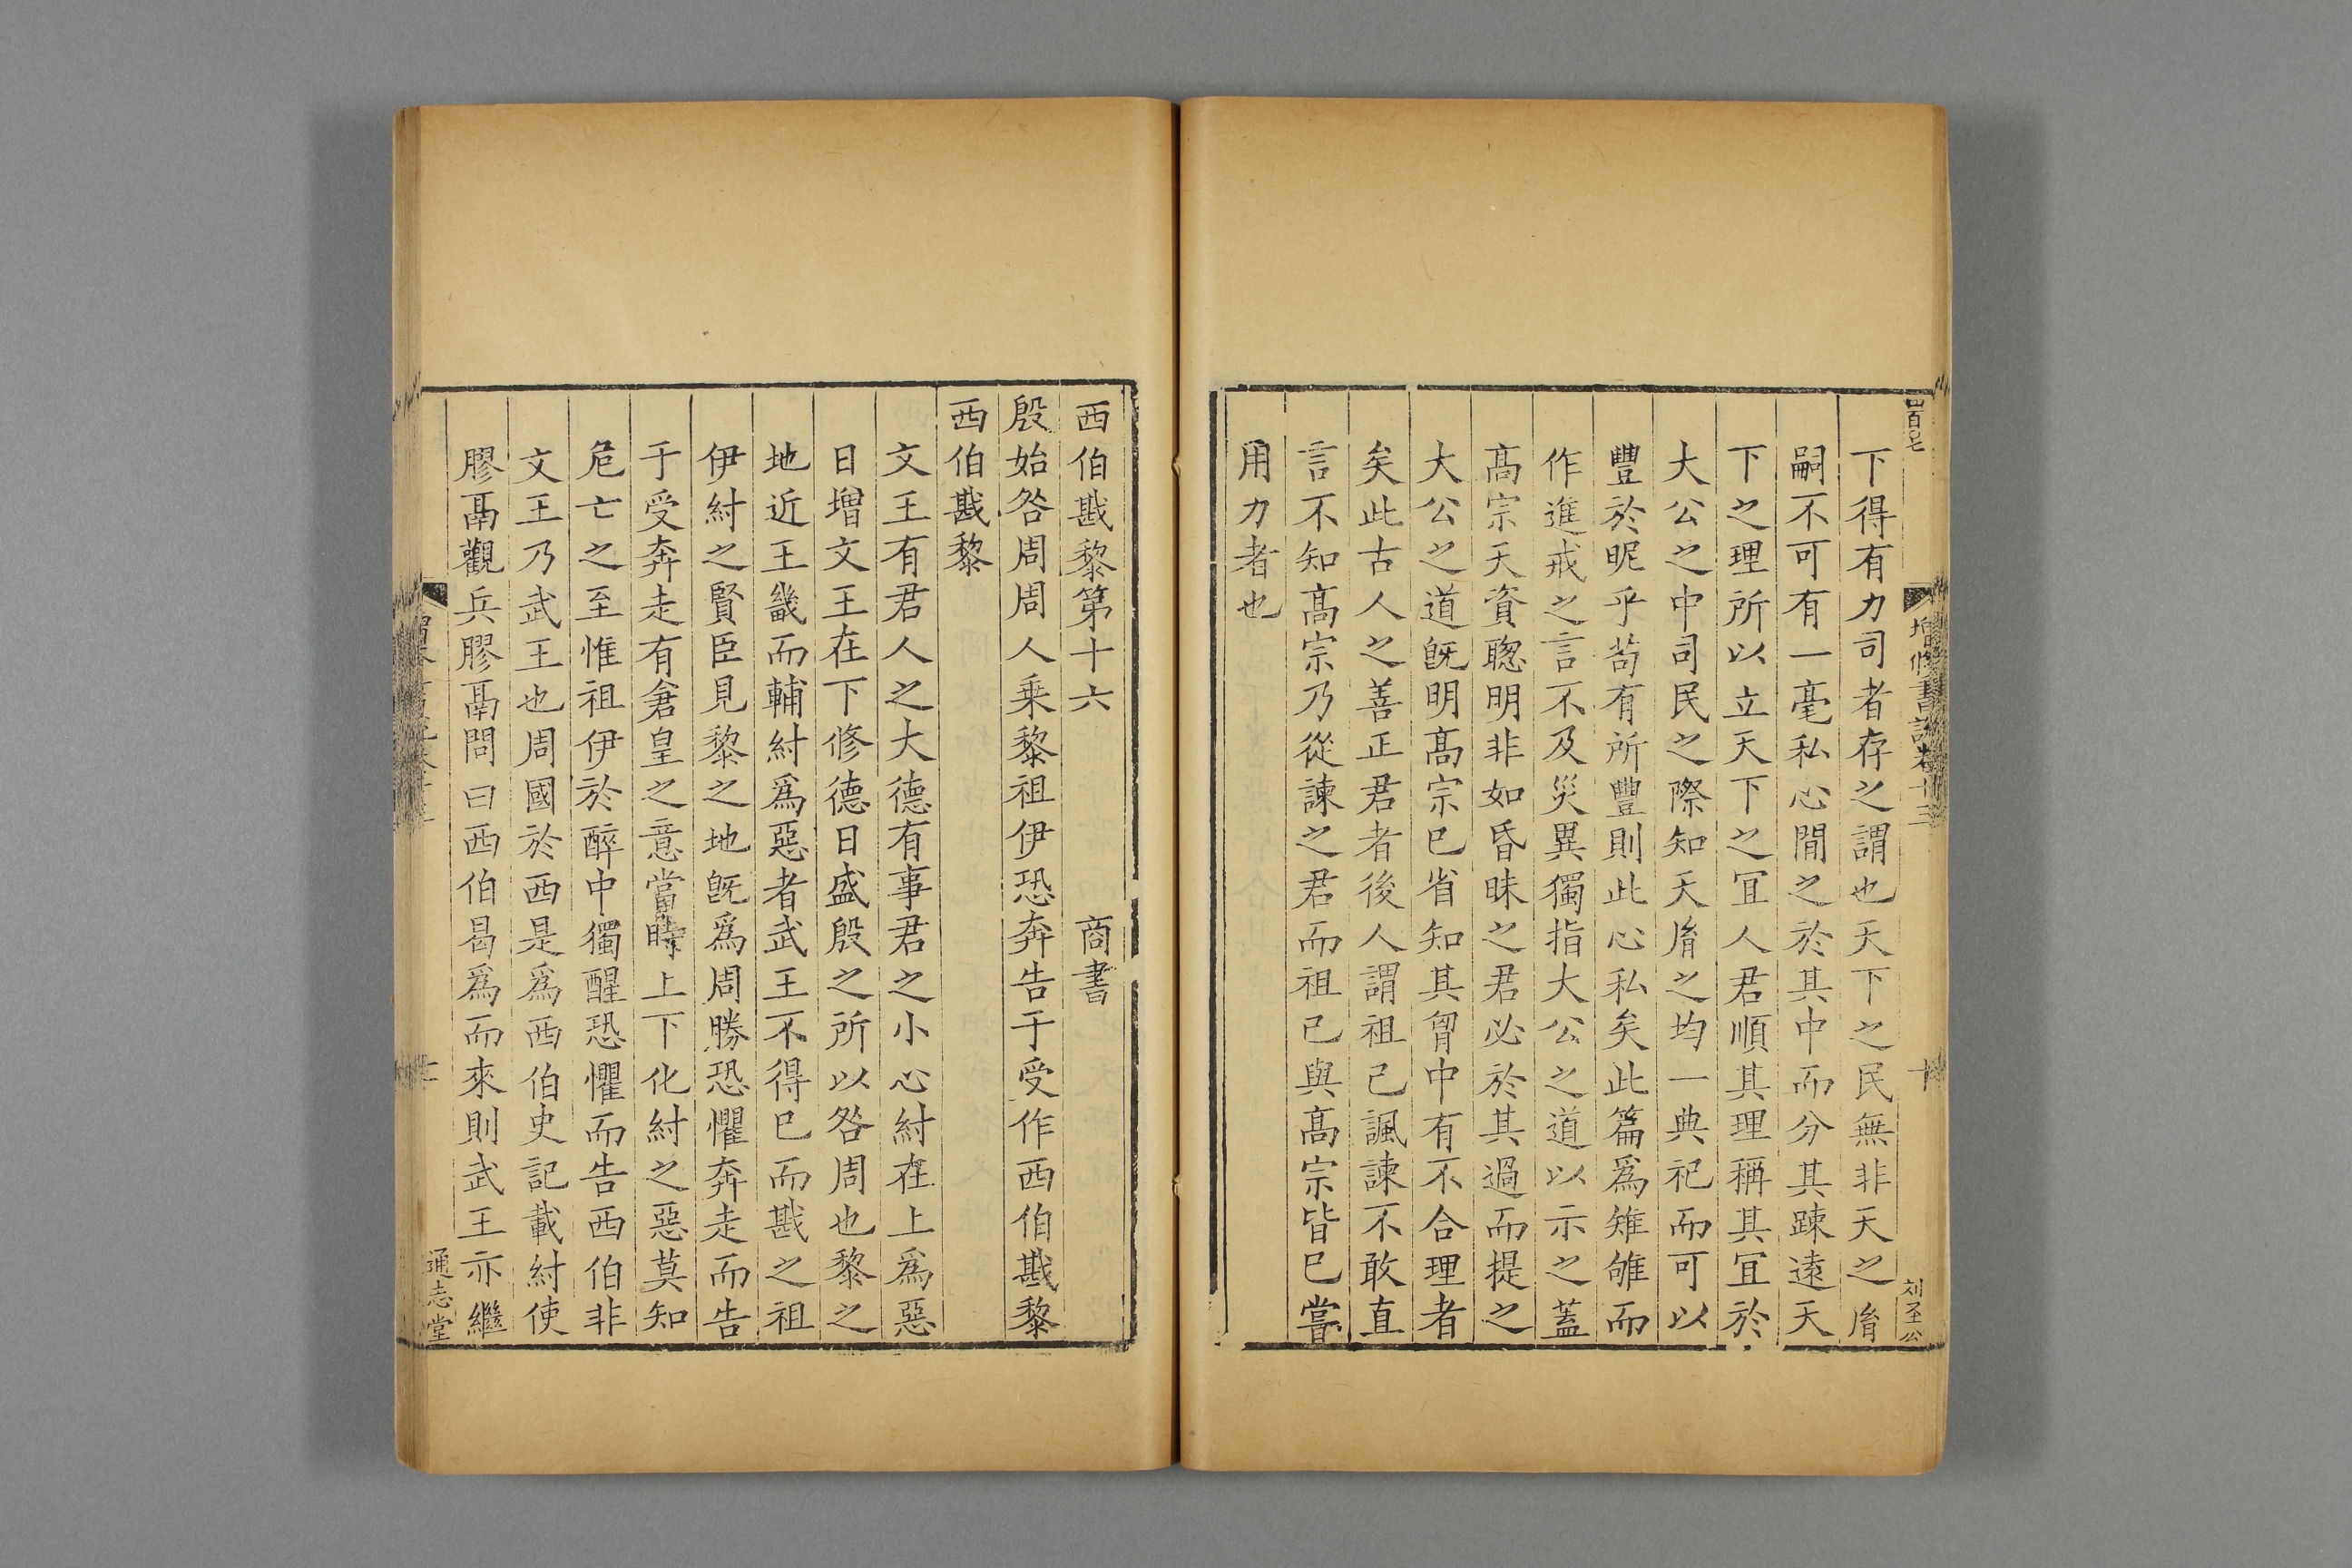 下得有力司者存之謂也天下之民無非天之胤
嗣不可有一毫私心間之於其中而分其踈遠天
下之理所以立天下之冝人君順其理稱其冝於
大公之中司民之際知天胤之均一典祀而可以
豐於昵乎苟有所豐則此心私矣此篇爲雉雊而
作進戒之言不及災異獨指大公之道以示之蓋
髙宗天資聦明非如昏昧之君必於其過而提之
大公之道旣明髙宗已省知其胷中有不合理者
矣此古人之善正君者後人謂祖己諷諫不敢直
言不知髙宗乃從諫之君而祖己與髙宗皆已嘗
用力者也
增修書說卷十三
十
西伯戡黎第十六 商書
殷始咎周周人乗黎祖伊恐奔告于受作西伯戡黎
西伯戡黎
文王有君人之大德有事君之小心紂在上爲惡
日增文王在下修德日盛殷之所以咎周也黎之
地近王畿而輔紂爲惡者武王不得已而戡之祖
伊紂之賢臣見黎之地旣爲周勝恐懼奔走而告
于受奔走有倉皇之意當時上下化紂之惡莫知
危亡之至惟祖伊於醉中獨醒恐懼而告西伯非
文王乃武王也周國於西是爲西伯史記載紂使
膠鬲觀兵膠鬲問曰西伯曷爲而來則武王亦繼
通志堂